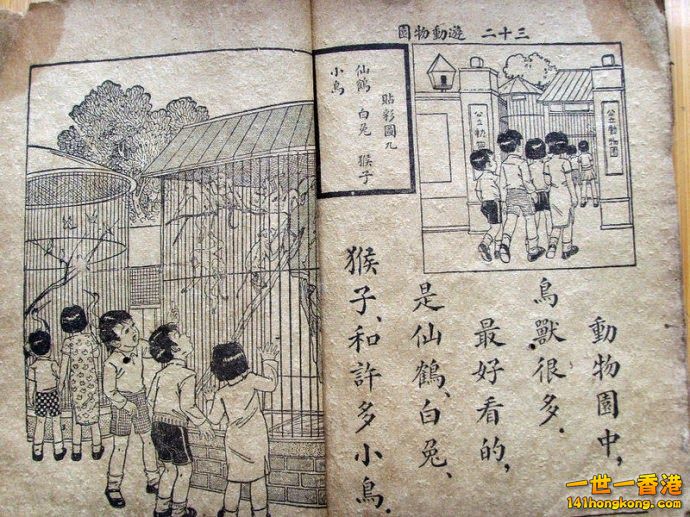 三十二 遊動物園
公立動物園
公立動物園
貼彩圖九
仙鶴 白兔 猴子
小鳥
動物園中,
鳥獸很多.
最好看的,
是仙鶴、白兔、
猴子、和許多小鳥.
一世一香港
141hongkong.com